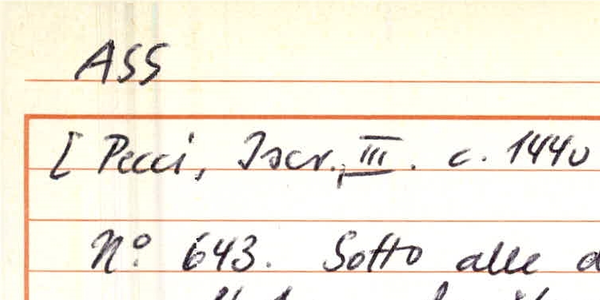 ASS
[ Pecci, Iscr. III. c. 144v
Nº 643. Sotto alle